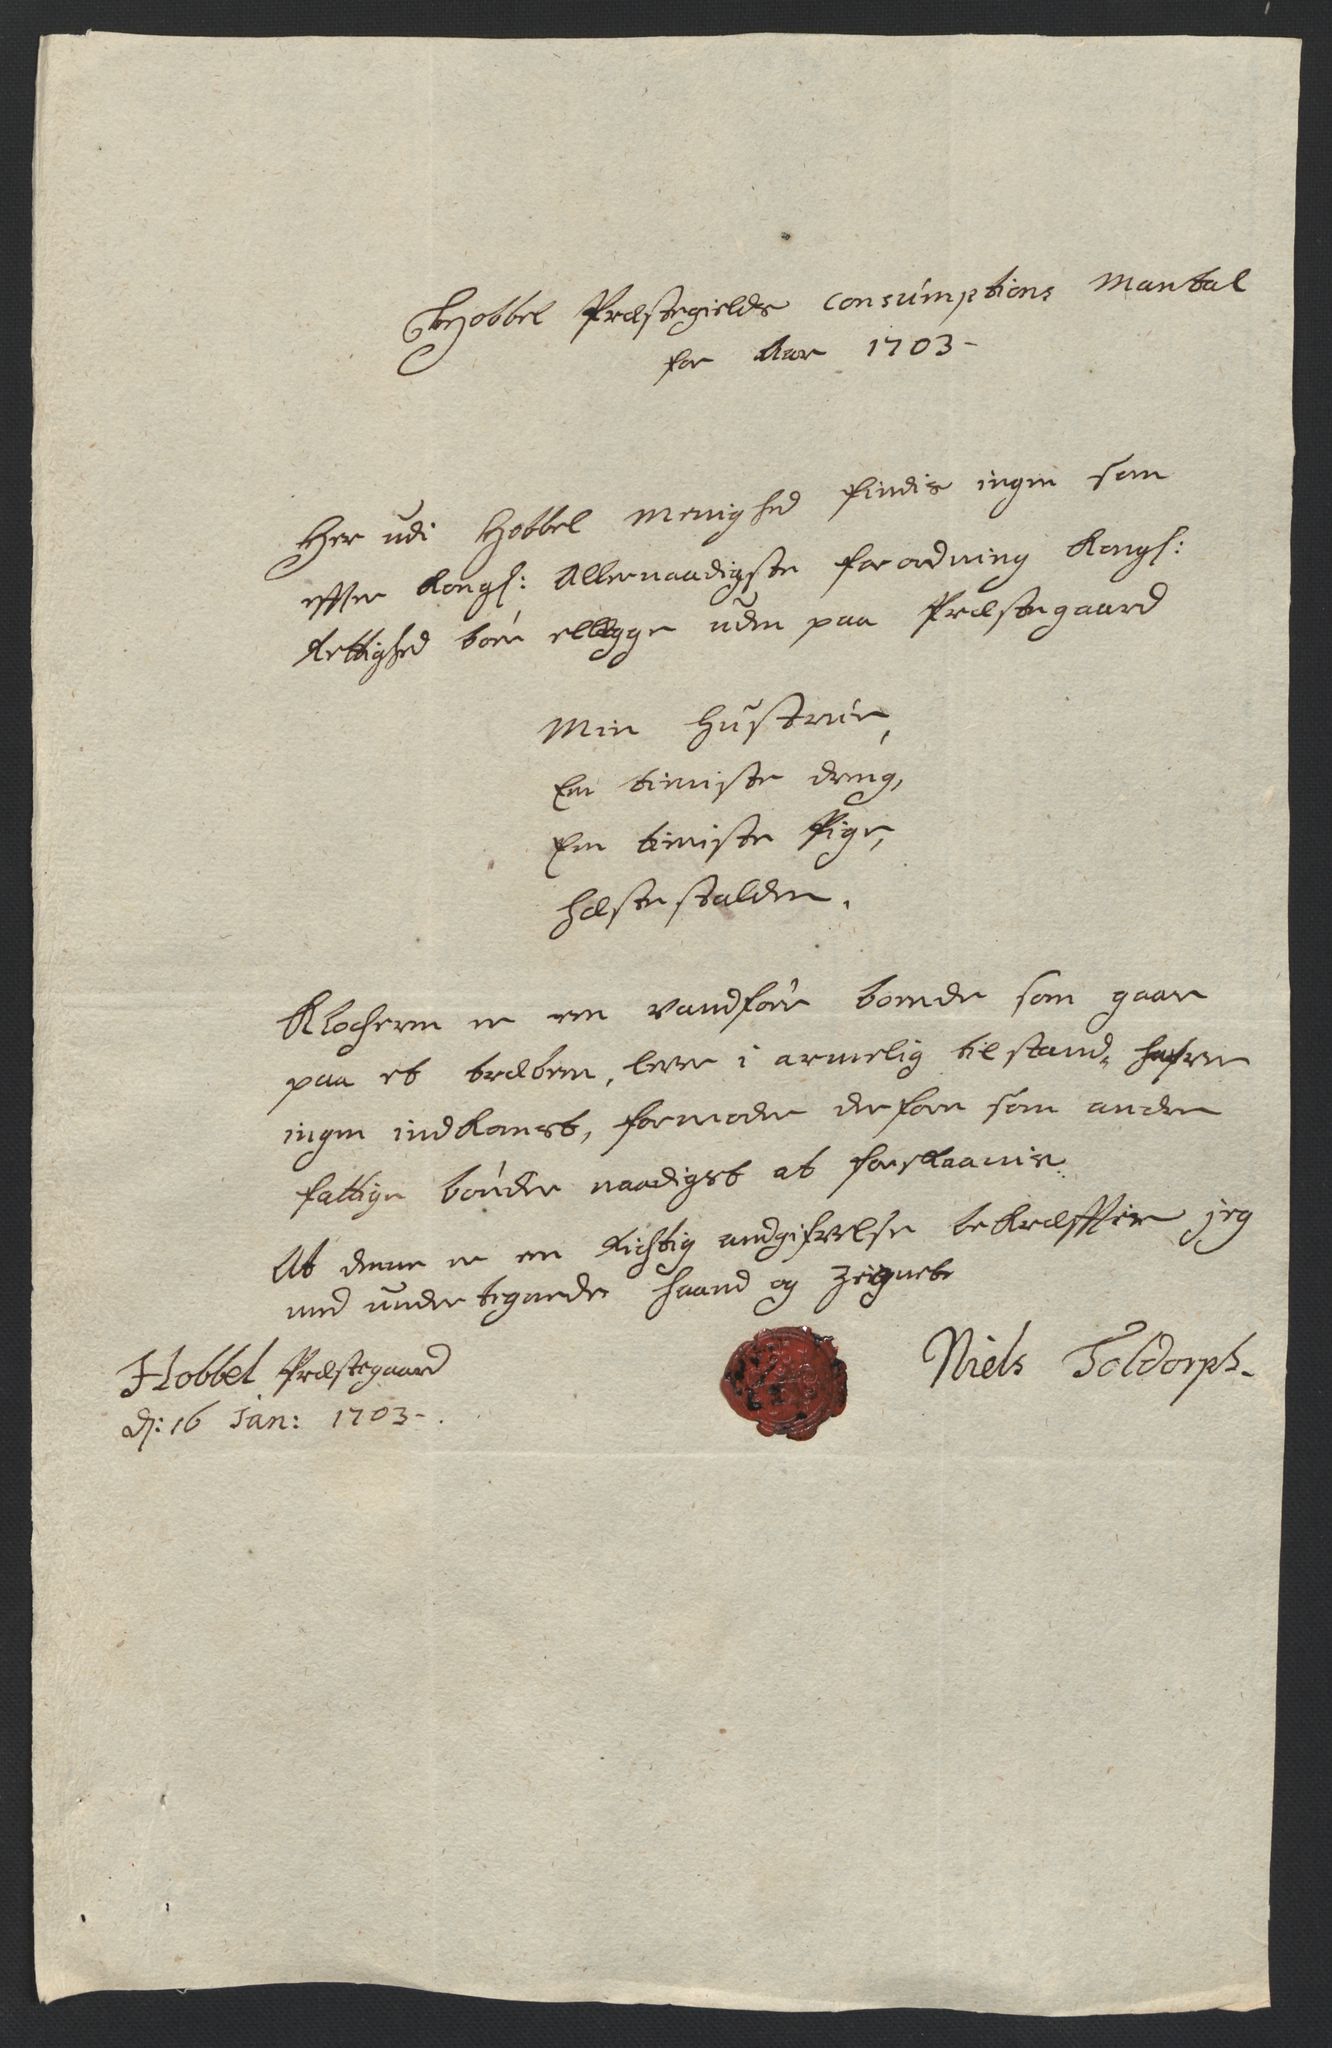 Hobbel Præstegields Consumptions Mantal
for Aar 1703-
Her udi Hobbel Menighed findis ingen som
effter Kongl: Allernaadigste forordning Kongl:
Rettighed bør ellegge uden paa Præstegaard
Min Hustrue,
En tieniste dreng,
En tieniste Pige,
hæstestalden.
Klocheren er een vandför bonde som gaar
paa et træbeen, lever i armelig tilstand, hafver
ingen indkomst, formoder derfore som andre
fattige bønder naadigst at forskaanis.
At denne er en Richtig andgifvelse bekræffter jeg
med under tegnede haand og Zeignete
Hobbel Præstegaard
d: 16 Jan: 1703-.
Niels Toldorph-